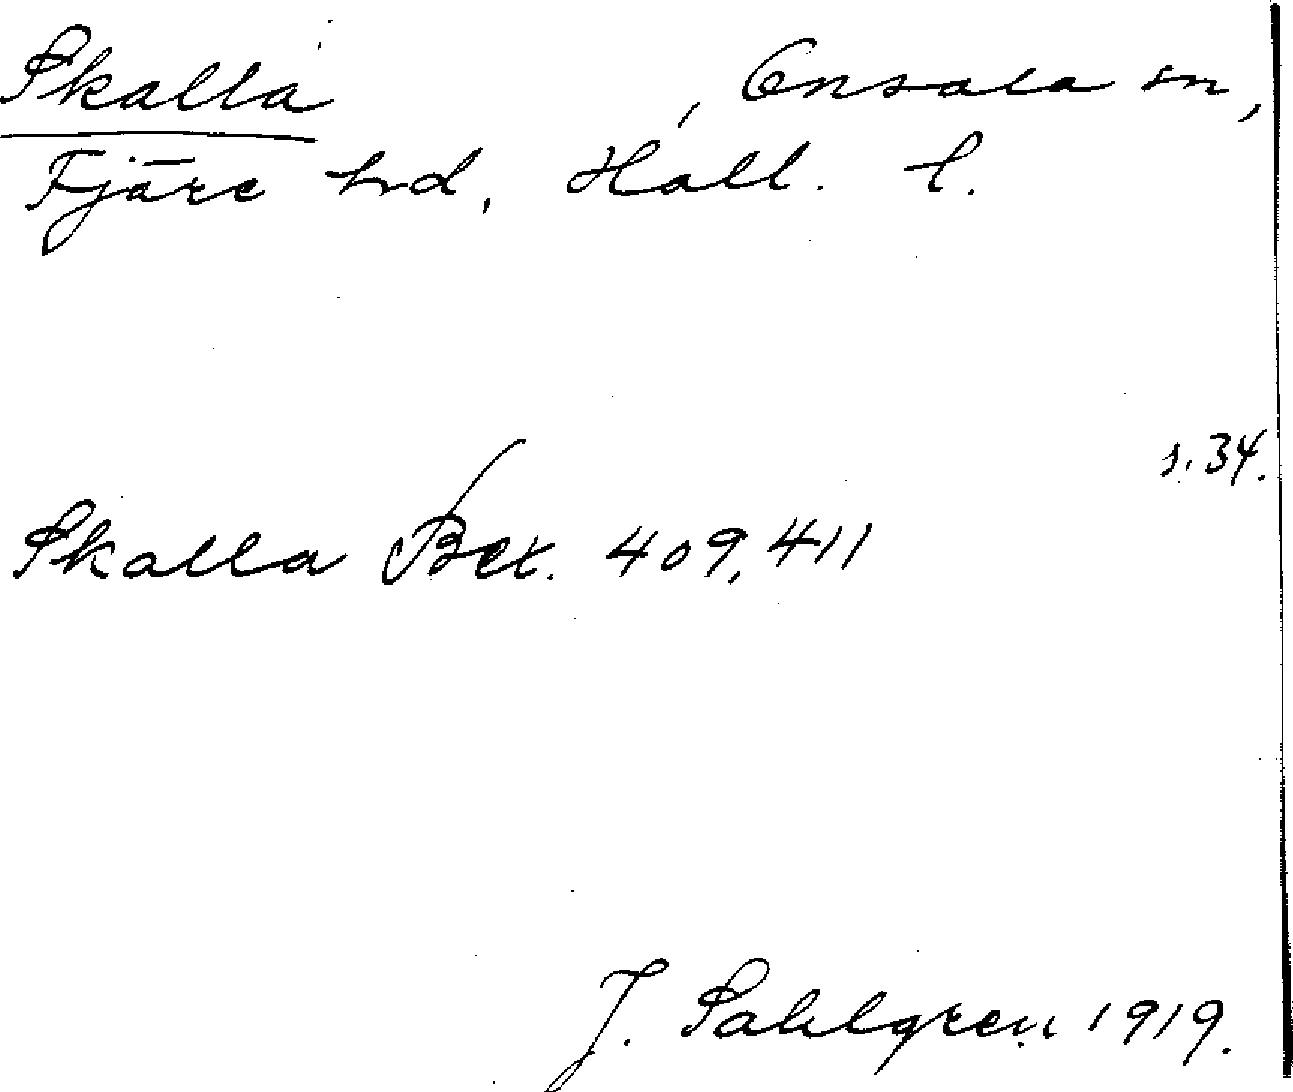 Skalla , Onsala sn,
Fjäre hd, Hall. l.
s. 34.
Skalla Bet. 409, 411
J. Sahlgren 1919.